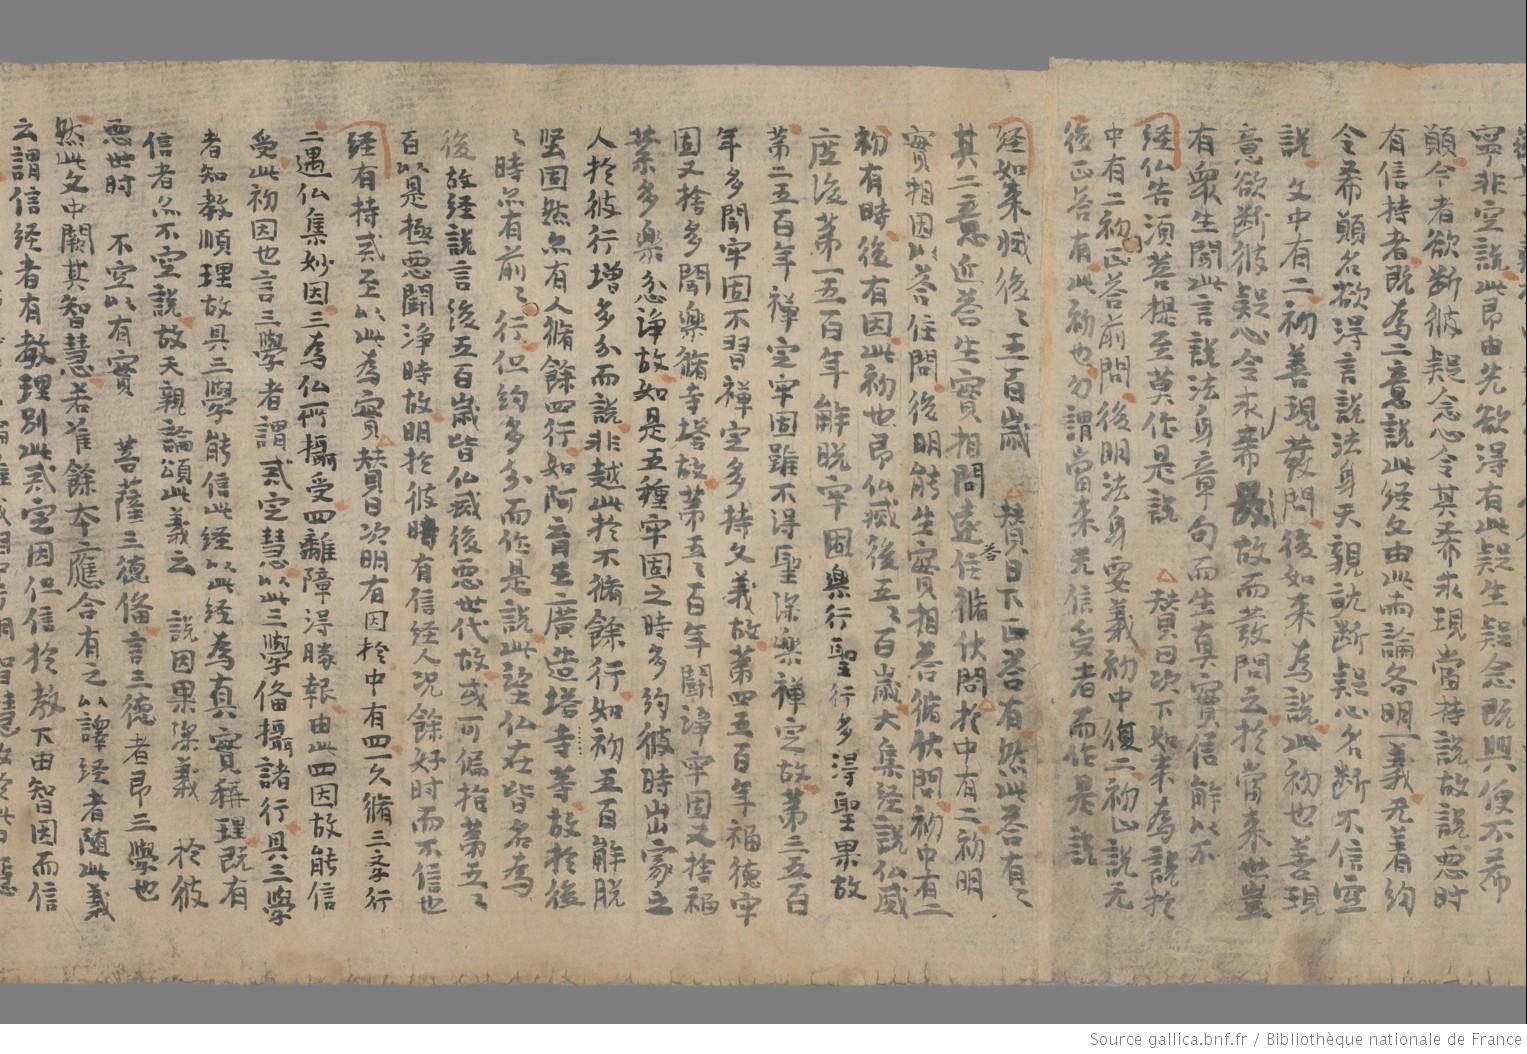 寧非空說此即由先欲得有此疑生疑念既興便不希
願今者欲斷彼疑念心令其希求現當持說故說惡時
有信持者既為二意說此經文由此而論各明一義无著約
令希願名欲得言說法身天親說斷疑心名斷不信空
說 文中有二初善現發問後如來為說此初也善現
意欲斷彼疑心令求希故而發問云於當來世豈
有眾生聞此言說法身章句而生真實信解以不
經仏告須菩提至莫作是說 贊曰次下如來為說於
中有二初正答前問後明法身要義初中復二初止說无
後正答有此初也勿謂當來无信受者而作是說
經如來滅後〻五百歲 贊曰下正答有然此答有〻
其二意近答生實相問遠答住脩伏問於中有二初明
實相因以答住問後明能生實相答脩伏問初中有二
初有時後有因此初也即仏滅後五〻百歲大集經說仏滅
度後第一五百年解脫牢固樂行聖行多得聖果故
第二五百年禪定牢固雖不得聖深樂禪定故第三五百
年多聞牢固不習禪定多持文義故第四五百年福德牢
固又捨多聞樂脩寺塔故第五〻百年鬪諍牢固又捨福
業多樂忿諍故如是五種牢固之時多約彼時出家之
人於彼行增多分而說非越此於不脩餘行如初五百解脫
堅固然亦有人脩餘四行如阿育王廣造塔寺等故於後
〻時亦有前〻行但約多分而作是說此望仏在皆名為
後故經說言後五百歲皆仏滅後惡世代故或可偏指第五〻
百以是極惡鬪淨時故明於彼時有信經人況餘好時而不信也
經有持戒至以此為實 贊曰次明有因於中有四一久脩三季行
二遇仏集妙因三為仏所攝受四離障得勝報由此四因故能信
受此初因也言三學者謂戒定慧以此三學俻攝諸行具三學
者知教順理故具三學能信此經以此經為真實稱理既有
信者亦不空說故天親論頌此義云 說因果深義 於彼
惡世時 不空以有實 菩薩三德俻言三德者即三學也
然此文中闕其智慧若准餘本應合有之以譯經者隨此義
云謂信經者有教理別此戒定因但信於教下由智因而信